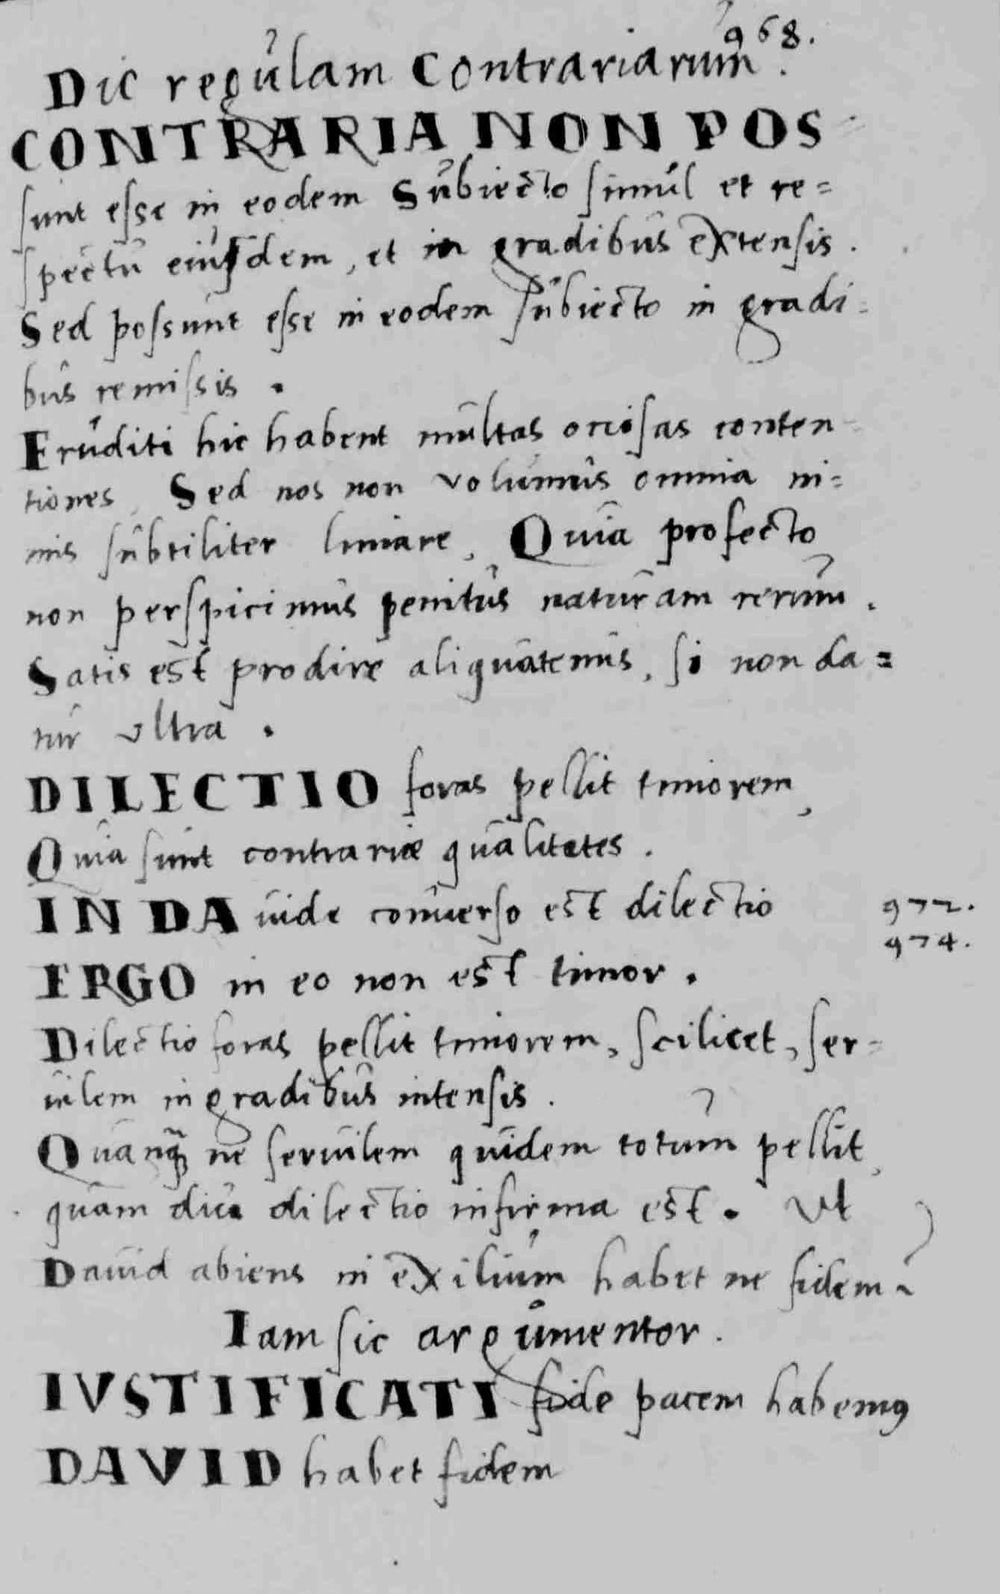 968.
Dic regulam Contrariarum?
CONTRARIA NON POS
sunt esse in eodem Subiecto simul et re=
spectu eiusdem, et in gradibus extensis.
Sed possunt esse in eodem subiecto in gradi=
bus remissis.
Eruditi hic habent multas ociosas conten=
tiones, Sed nos non volumus omnia ni=
mis subtiliter limare, Quia profecto
non perspicimus penitus naturam rerum.
Satis est prodire aliquatenus, si non da=
tur vltra.
DILECTIO foras pellit timorem,
Quia sunt contrariæ qualitates.
IN DAuide conuerso est dilectio 972.
974.
ERGO in eo non est timor.
Dilectio foras pellit timorem, scilicet, ser=
uilem in gradibus intensis.
Quanq ne seruilem quidem totum pellit,
quam diu dilectio infirma est. Vt
Dauid abiens in exilium habet ne fidem?
Iam sic argumentor.
IVSTIFICATI fide pacem habemus
DAVID habet fidem